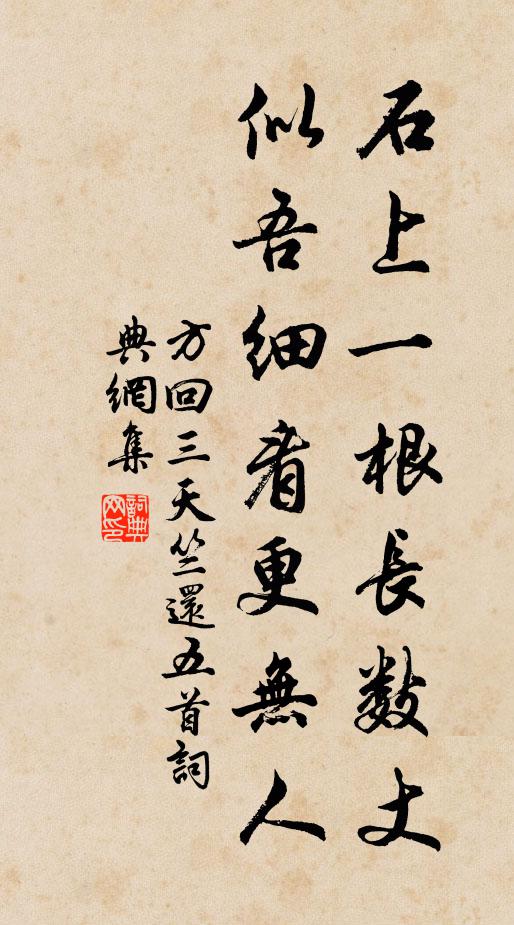 石上一根長数丈
似吾細看更無人
方回三天竺還五首詞
典網集
詞典網印